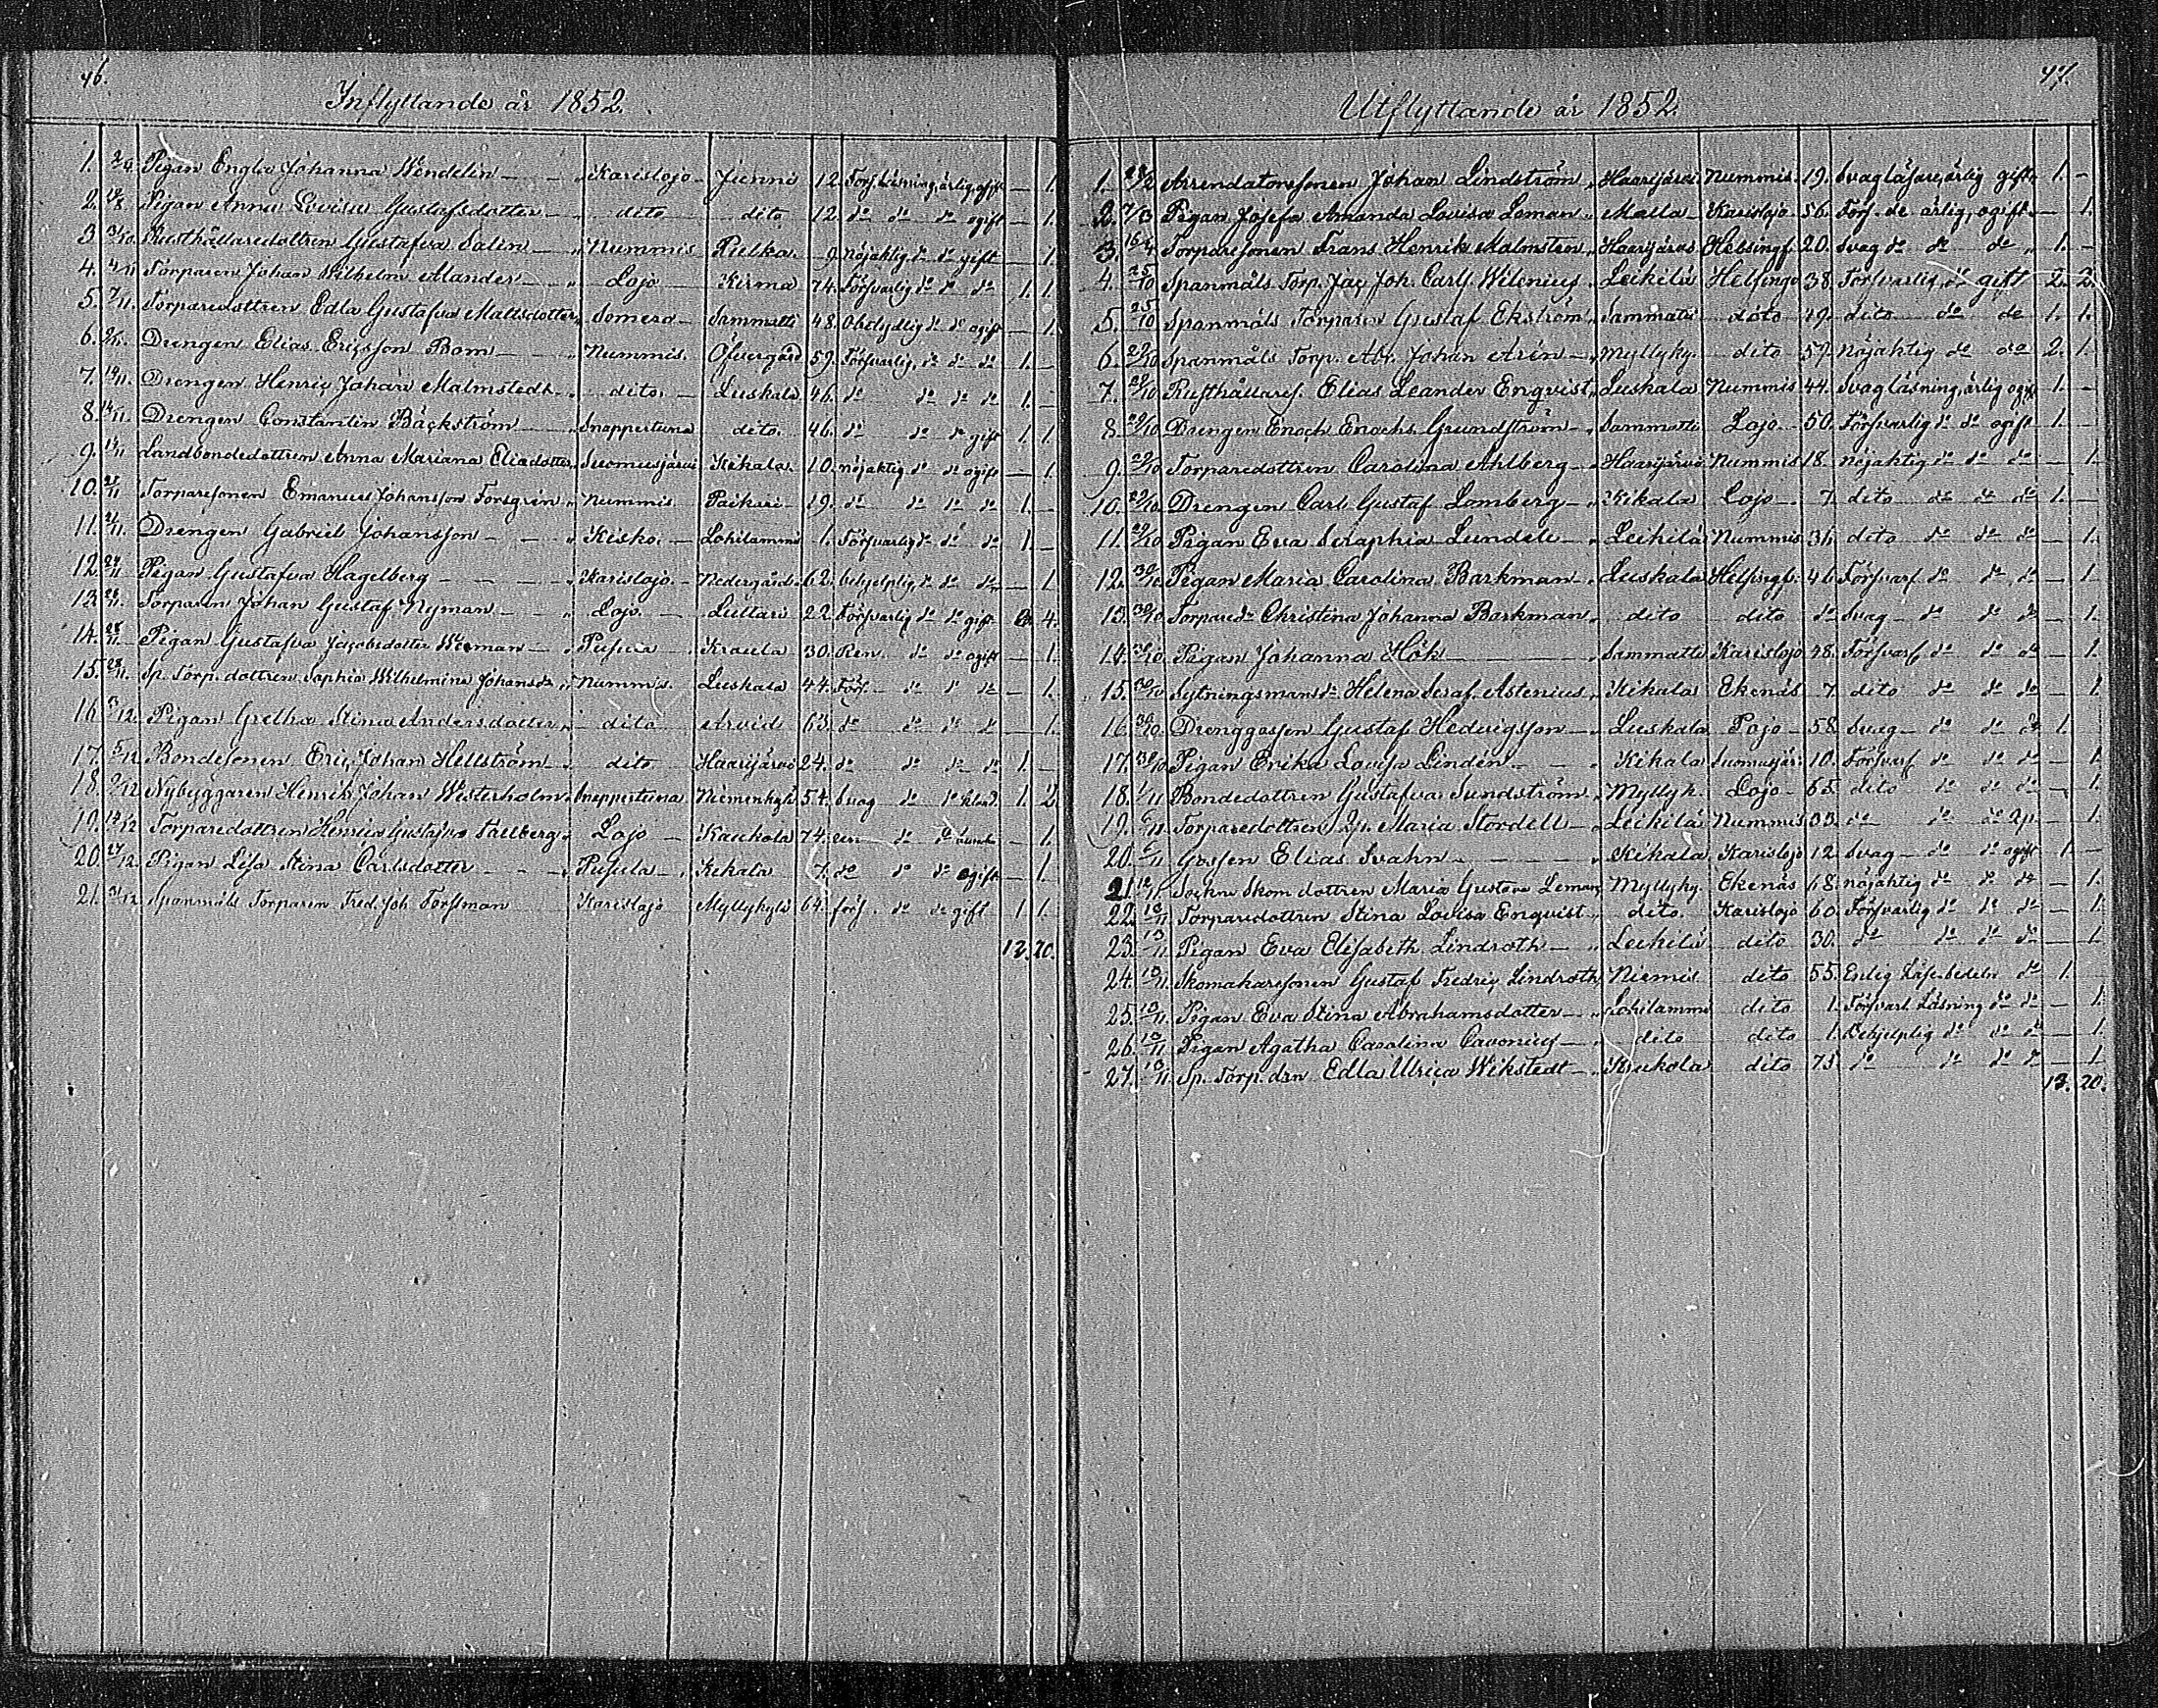 46.
Inflyttande år 1852.
1. 2/4 Pigan Engla Johanna Wendelin — " Karislojo Junni 12. Förs. läsning, ärlig, — 1.
2. Pigan Anna Lovisa Gustafsdotter — " dito dito 12. do do do ogift — 1.
3. 31/10 Rusthållaredottren Gustafva Salin — " Nummis Pielka 9. nöjaktig do do gift — 1.
4. 4/11 Torparen Johan Wilhelm Alander — " Lojo Kirma 74. Försvarlig do do do 1. 1.
5. 7/11. Torparedottren Edla Gustafva Mattsdotter " Somero Sammatti 48. Obetydlig do do ogift — 1.
6. Drengen Elias Ericsson Bom — " Nummis. Öfvergård 59. Försvarlig, do do do 1. —
7. 14/11. Drengen Henric Johan Malmstedt — " dito. Luskala 46. do do do do 1. —
8. 14/11. Drengen Constantin Bäckström — Snappertuna dito. 46. do do do gift 1. 1.
9. 14/11 Landbondedottren Anna Mariana Eliedotter Suomusjärvi Kikala 10. nöjaktig do do ogift — 1.
10. 21/11 Torparesonen Emanuel Johansson Forsgrén " Nummis. Paikari 29. do do do do 1. —
11. 21/11. Drengen Gabriel Johansson — " Kisko. Lohilammi 1. Försvarlig do do do 1. —
12. 27/11 Pigan Gustafva Hagelberg — " Karislojo Nedergård 62. behjelplig, do do do — 1.
13. 28/11. Torparen Johan Gustaf Nyman — " Lojo Luttari 22. Försvarlig do do gift 4.
14. 28/11. Pigan Gustafva Jacobsdotter — " Pusula Kraula 30. Ren. do do ogift — 1.
15. 28/11. Sp. Torp. dottren Sophia Wilhelmina Johansdr " Nummis. Luskala 44. Förs. do do do — 1.
16. /12. Pigan Gretha Stina Andersdotter " dito Arvid 63. do do do do — 1.
17. 5/12 Bondesonen Eric Johan Hellström — " dito Haarijärvi 24. do do do do 1. —
18. /12 Nybyggaren Henrik Johan Westerholm Snappertuna Niemenkylä 54. Svag do do 1. 2.
19. 12/12 Torparedottren Henrica Gustafva Tallberg " Lojo Kaukola 74. ren do do — 1.
20. 27/12. Pigan Lisa Stina Carlsdotter — " Pusula Kikala 7. do do do ogift — 1.
21. 31/12 Spanmåls Torparen Fred. Joh. Forsman Karislojo Myllykylä 64. förs. do do gift 1. 1.
20.
47.
Utflyttande år 1852.
1. 28/2 Arrendatorssonen Johan Lindström " Haarijärvi Nummis. 19. Svag läsare, ärlig gift 1. —
2. 7/3 Pigan Josefa Amanda Lovisa Loman " Malla Karislojo 56. Förs. do ärlig, ogift — 1.
3. 16/4 Torparesonen Frans Henrik Malmsten " Haarijärvi Helsingf. 20. Svag do do do " 1. —
4. 25/10 Spanmåls Torp. Jac. Joh. Carls. Wilenius Leikilä Helsinge 38. Försvarlig do gift 2. 2.
5. 25/10 Spanmåls Torparen Gustaf Ekström Sammatti dito 49. dito do do 1. 1.
6. 29/10 Spanmåls Torp. Abr. Johan Arén — " Myllyky. dito 57. Nöjaktig do do 2. 1.
7. 29/10 Rusthållares. Elias Leander Enqvist " Luskala Nummis 44. Svag läsning, ärlig ogift 1. —
8. 29/10 Drengen Enoch Enochs. Grundström — Sammatti Lojo 50. Försvarlig do do ogift 1. —
9. 29/10 Torparedottren Carolina Ahlberg — " Haarijärvi Nummis 18. Nöjaktig do do do — 1.
10. 29/10 Drengen Carl Gustaf Lomberg — " Kikala Lojo 7. dito do do do 1. —
11. 29/10 Pigan Eva Seraphia Lundele — " Leikilä Nummis 36. dito do do do — 1.
12. 30/10 Pigan Maria Carolina Barkman — " Luskala Helsingf. 46. Försvarl do do do — 1.
13. 30/10 Torpared. Christina Johanna Barkman " dito dito do Svag do do do — 1.
14. 30/10 Pigan Johanna Hök — Sammatti Karislojo 48. Försvarl do do do — 1.
15. 30/10 Sytningsmansdr Helena Seraf. Astenius " Kikala Ekenäs 7. dito do do do — 1.
16. 30/10 Drenggossen Gustaf Hedvigsson — " Luskala Pojo 58. Svag do do do 1.
17. 30/10 Pigan Erika Lovisa Lindén — " Kikala Suomusjär. 10. Försvarl do do do — 1.
18. 1/11 Bondedottren Gustafva Sundström " Myllyk. Lojo 65. dito do do do — 1.
19. 6/11 Torparedottren Maria Stordell — " Leikilä Nummis 33. do do do — 1.
20. 6/11 Gossen Elias Svahn — " Kikala Karislojo 12. Svag do do ogift 1. —
21. 12/11 Sockne Skom dottren Maria Gustava Leman, Myllyky. Ekenäs 68. nöjaktig do do do — 1.
22. 13/11 Torparedottren Stina Lovisa Enqvist " dito. Karislojo 60. Försvarlig do do do — 1.
23. 13/11 Pigan Eva Elisabeth Lindroth — " Leikilä dito 30. do do do do — 1.
24. 13/11 Skomakarsonen Gustaf Fredric Lindroth, Niemis. dito 55. Enlig Läse-beteln do 1.
25. 13/11 Pigan Eva Stina Abrahamsdotter — " Lohilammi dito 1. Försvarl. Läsning do do — 1.
26. 13/11 Pigan Agatha Carolina Cavonius — " dito dito 1. Behjelplig do do do — 1.
27. 13/11 Sp. Torp. drn Edla Ulrica Wikstedt — " Kaukola dito 75. do do do do — 1.
13. 20.